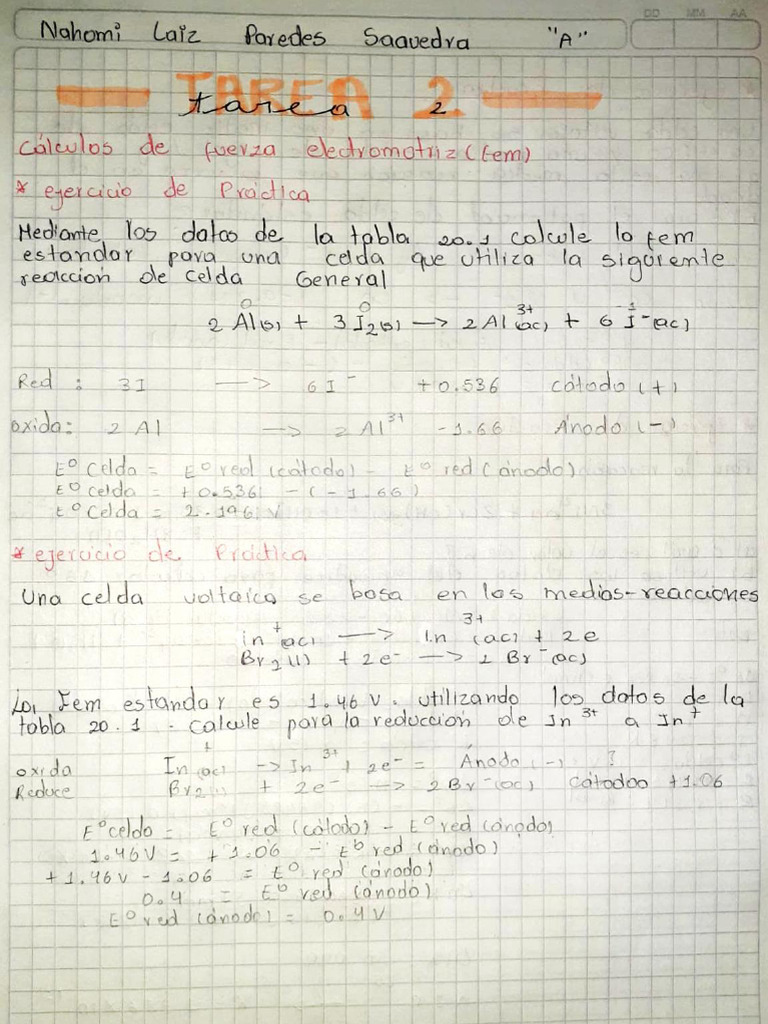 DD MM AA
Nahomi Laiz Paredes Saavedra "A"
TAREA 2
tarea 2
Cálculos de fuerza electromotriz (fem)
* ejercicio de Práctica
Mediante los datos de la tabla 20.1 calcule la fem
estandar para una celda que utiliza la siguiente
reaccion de celda General
0 0 3+ -1
2 Al(s) + 3 I₂(s) → 2 Al³⁺(ac) + 6 I⁻(ac)
Red : 3I → 6I⁻ +0.536 cátodo (+)
oxida: 2 Al → 2 Al³⁺ -1.66 Ánodo (-)
E° celda = E° red (cátodo) - E° red (ánodo)
E° celda = +0.536 - (-1.66)
E° celda = 2.196 V
* ejercicio de Práctica
Una celda voltaica se basa en las medias-reacciones
in⁺(ac) → In³⁺(ac) + 2e
Br₂(l) + 2e⁻ → 2 Br⁻(ac)
La Fem estandar es 1.46 V. utilizando los datos de la
tabla 20.1 . calcule para la reduccion de In³⁺ a In⁺
oxida In⁺(ac) → In³⁺ + 2e⁻ = Ánodo (-) ?
Reduce Br₂(l) + 2e⁻ → 2Br⁻(ac) cátodoo +1.06
E° celda = E° red (cátodo) - E° red (ánodo)
1.46V = +1.06 - E° red (ánodo)
+1.46V - 1.06 = E° red (ánodo)
0.4 = E° red (ánodo)
E° red (ánodo) = 0.4V